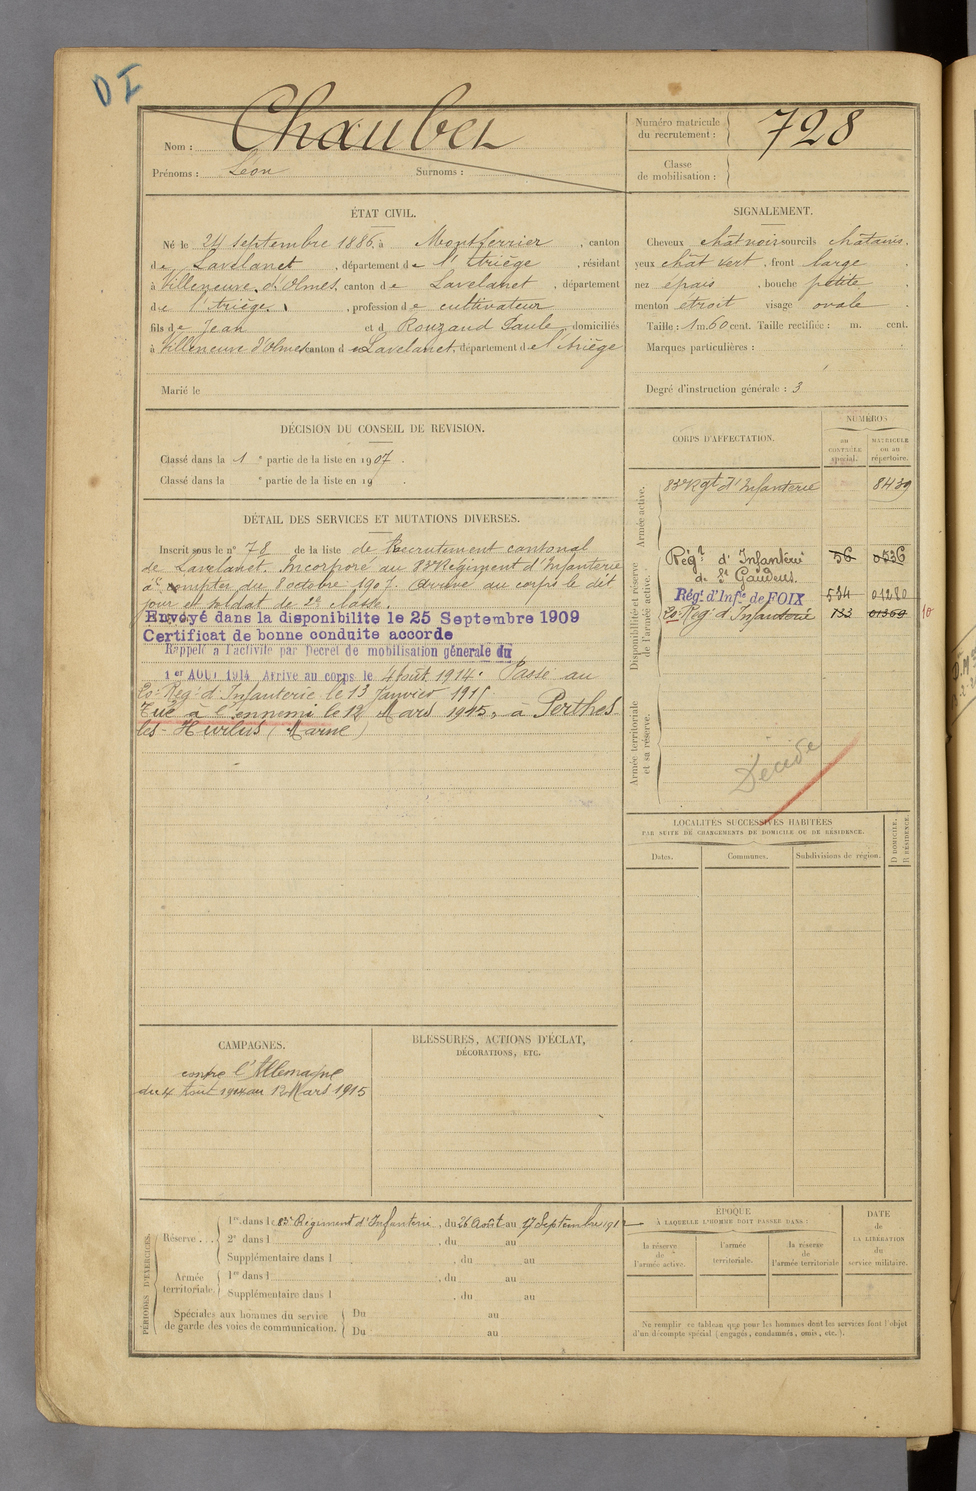 D I
Nom : Chaubet
Prénoms : Léon Surnoms :
Numéro matricule
du recrutement : 728
Classe
de mobilisation :
ÉTAT CIVIL.
Né le 24 septembre 1886, à Montferrier, canton
de Lavelanet, département de l'Ariège, résidant
à Villeneuve d'Olmes, canton de Lavelanet, département
de l'Ariège, profession de cultivateur
fils de Jean et d Rouzaud Paule, domiciliés
à Villeneuve d'Olmes canton de Lavelanet, département de l'Ariège
Marié le
SIGNALEMENT.
Cheveux chât noir sourcils châtains.
yeux chât vert, front large
nez épais, bouche petite
menton étroit visage ovale
Taille : 1 m. 60 cent. Taille rectifiée : m. cent.
Marques particulières :
Degré d'instruction générale : 3
DÉCISION DU CONSEIL DE REVISION.
Classé dans la 1e partie de la liste en 1907.
Classé dans la e partie de la liste en 19 .
CORPS D'AFFECTATION.
NUMÉROS
au
CONTRÔLE
spécial.
MATRICULE
ou au
répertoire.
Armée active.
83e Rgt d'Infanterie 8439
Disponibilité et réserve
de l'armée active.
Régt d'Infanterie 56 0536
de St Gaudens
Rég. d'Infie de FOIX 534 01280
20e Rég. d'Infanterie 133 01360 10
Armée territoriale
et sa réserve.
Décédé
DÉTAIL DES SERVICES ET MUTATIONS DIVERSES.
Inscrit sous le n° 78 de la liste de Recrutement cantonal
de Lavelanet. Incorporé au 83e Régiment d'Infanterie
à compter du 8 octobre 1907. Arrivé au corps le dit
jour et soldat de 2e classe.
Envoyé dans la disponibilité le 25 Septembre 1909
Certificat de bonne conduite accordé
Rappelé à l'activité par Décret de mobilisation générale du
1er AOUT 1914 Arrivé au corps le 4 Août 1914. Passé au
20e Rég. d'Infanterie le 13 Janvier 1915
Tué à l'ennemi le 12 Mars 1915, à Perthes
les-Hurlus (Marne)
LOCALITÉS SUCCESSIVES HABITÉES
PAR SUITE DE CHANGEMENTS DE DOMICILE OU DE RÉSIDENCE.
Dates. Communes. Subdivisions de région. D DOMICILE. R RÉSIDENCE.
CAMPAGNES.
contre l'Allemagne
du 4 Août 1914 au 12 Mars 1915
BLESSURES, ACTIONS D'ÉCLAT,
DÉCORATIONS, ETC.
PÉRIODES D'EXERCICES.
Réserve . . .
1re dans le 83e Régiment d'Infanterie, du 26 Août au 17 Septembre 1912
2e dans l , du au
Supplémentaire dans l , du au
Armée
territoriale.
1re dans l , du au
Supplémentaire dans l , du au
Spéciales aux hommes du service
de garde des voies de communication.
Du au
Du au
ÉPOQUE
À LAQUELLE L'HOMME DOIT PASSER DANS :
la réserve
de
l'armée active.
l'armée
territoriale.
la réserve
de
l'armée territoriale
DATE
de
LA LIBÉRATION
du
service militaire.
Ne remplir ce tableau que pour les hommes dont les services font l'objet
d'un décompte spécial (engagés, condamnés, omis, etc.).